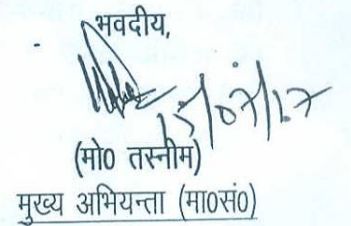 भवदीय,
15/07/17
(मो0 तस्नीम)
मुख्य अभियन्ता (मा0सं0)